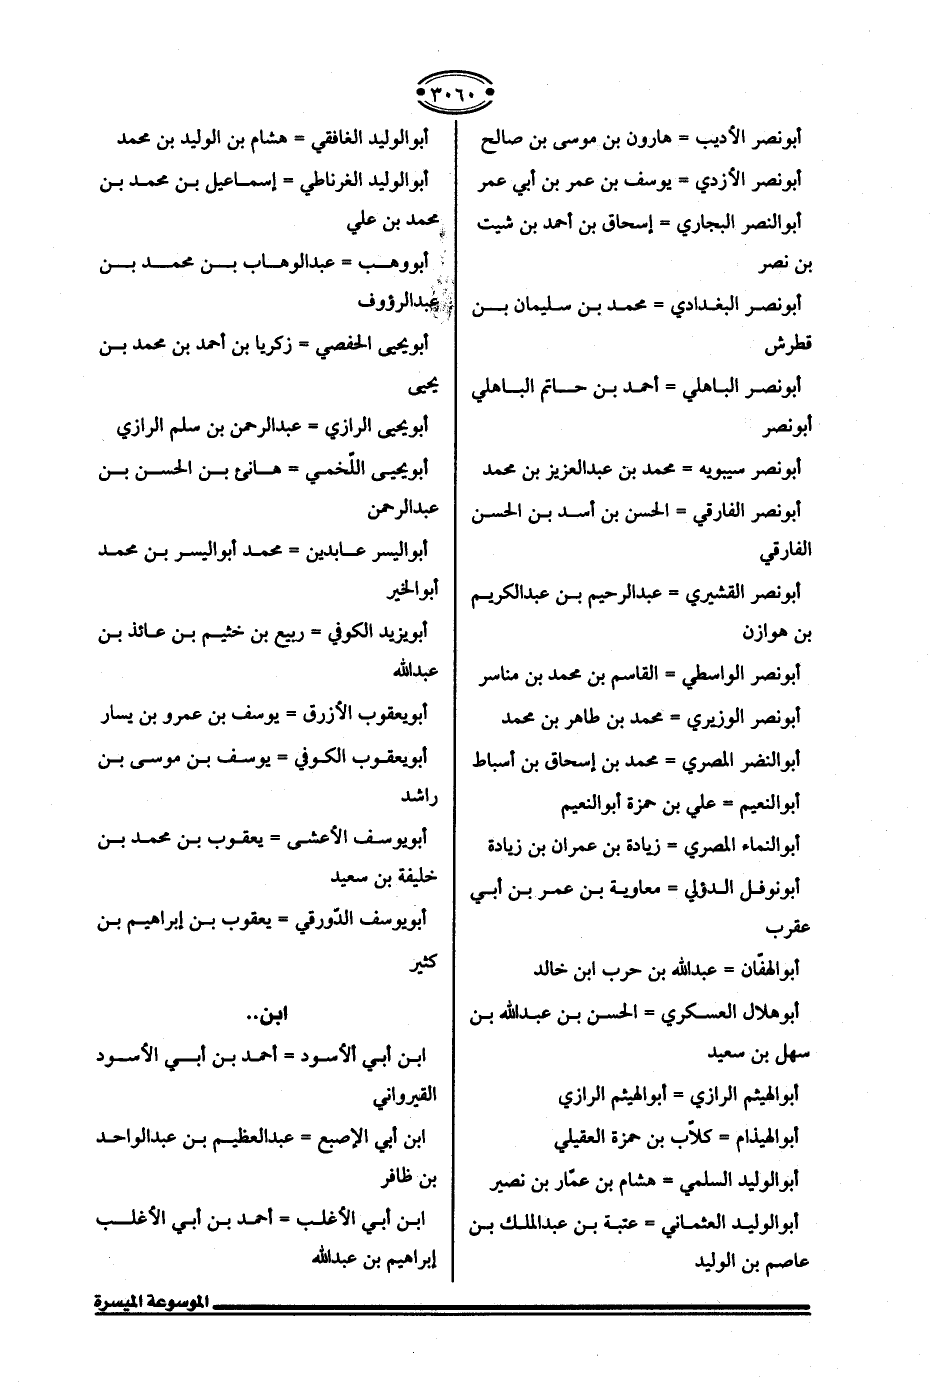 ٣٠٦٠
أبونصر الأديب = هارون بن موسى بن صالح
أبونصر الأزدي = يوسف بن عمر بن أبي عمر
أبوالنصر البجاري = إسحاق بن أحمد بن شيت
بن نصر
أبونصر البغدادي = محمد بن سليمان بن
قطرش
أبونصر الباهلي = أحمد بن حاتم الباهلي
أبونصر
أبونصر سيبويه = محمد بن عبدالعزيز بن محمد
أبونصر الفارقي = الحسن بن أسد بن الحسن
الفارقي
أبونصر القشيري = عبدالرحيم بن عبدالكريم
بن هوازن
أبونصر الواسطي = القاسم بن محمد بن مناسر
أبونصر الوزيري = محمد بن طاهر بن محمد
أبوالنضر المصري = محمد بن إسحاق بن أسباط
أبوالنعيم = علي بن حمزة أبوالنعيم
أبوالنماء المصري = زيادة بن عمران بن زيادة
أبونوفل الدؤلي = معاوية بن عمر بن أبي
عقرب
أبوالهفّان = عبدالله بن حرب ابن خالد
أبوهلال العسكري = الحسن بن عبدالله بن
سهل بن سعيد
أبوالهيثم الرازي = أبوالهيثم الرازي
أبوالهيذام = كلاّب بن حمزة العقيلي
أبوالوليد السلمي = هشام بن عمّار بن نصير
أبوالوليد العثماني = عتبة بن عبدالملك بن
عاصم بن الوليد
أبوالوليد الغافقي = هشام بن الوليد بن محمد
أبوالوليد الغرناطي = إسماعيل بن محمد بن
محمد بن علي
أبووهب = عبدالوهاب بن محمد بن
عبدالرؤوف
أبويحيى الحفصي = زكريا بن أحمد بن محمد بن
يحيى
أبويحيى الرازي = عبدالرحمن بن سلم الرازي
أبويحيى اللّخمي = هانئ بن الحسن بن
عبدالرحمن
أبواليسر عابدين = محمد أبواليسر بن محمد
أبوالخير
أبويزيد الكوفي = ربيع بن خثيم بن عائذ بن
عبدالله
أبويعقوب الأزرق = يوسف بن عمرو بن يسار
أبويعقوب الكوفي = يوسف بن موسى بن
راشد
أبويوسف الأعشى = يعقوب بن محمد بن
خليفة بن سعيد
أبويوسف الدّورقي = يعقوب بن إبراهيم بن
كثير
ابن..
ابن أبي ألأسود = أحمد بن أبي الأسود
القيرواني
ابن أبي الإصبع = عبدالعظيم بن عبدالواحد
بن ظافر
ابن أبي الأغلب = أحمد بن أبي الأغلب
إبراهيم بن عبدالله
الموسوعة الميسرة